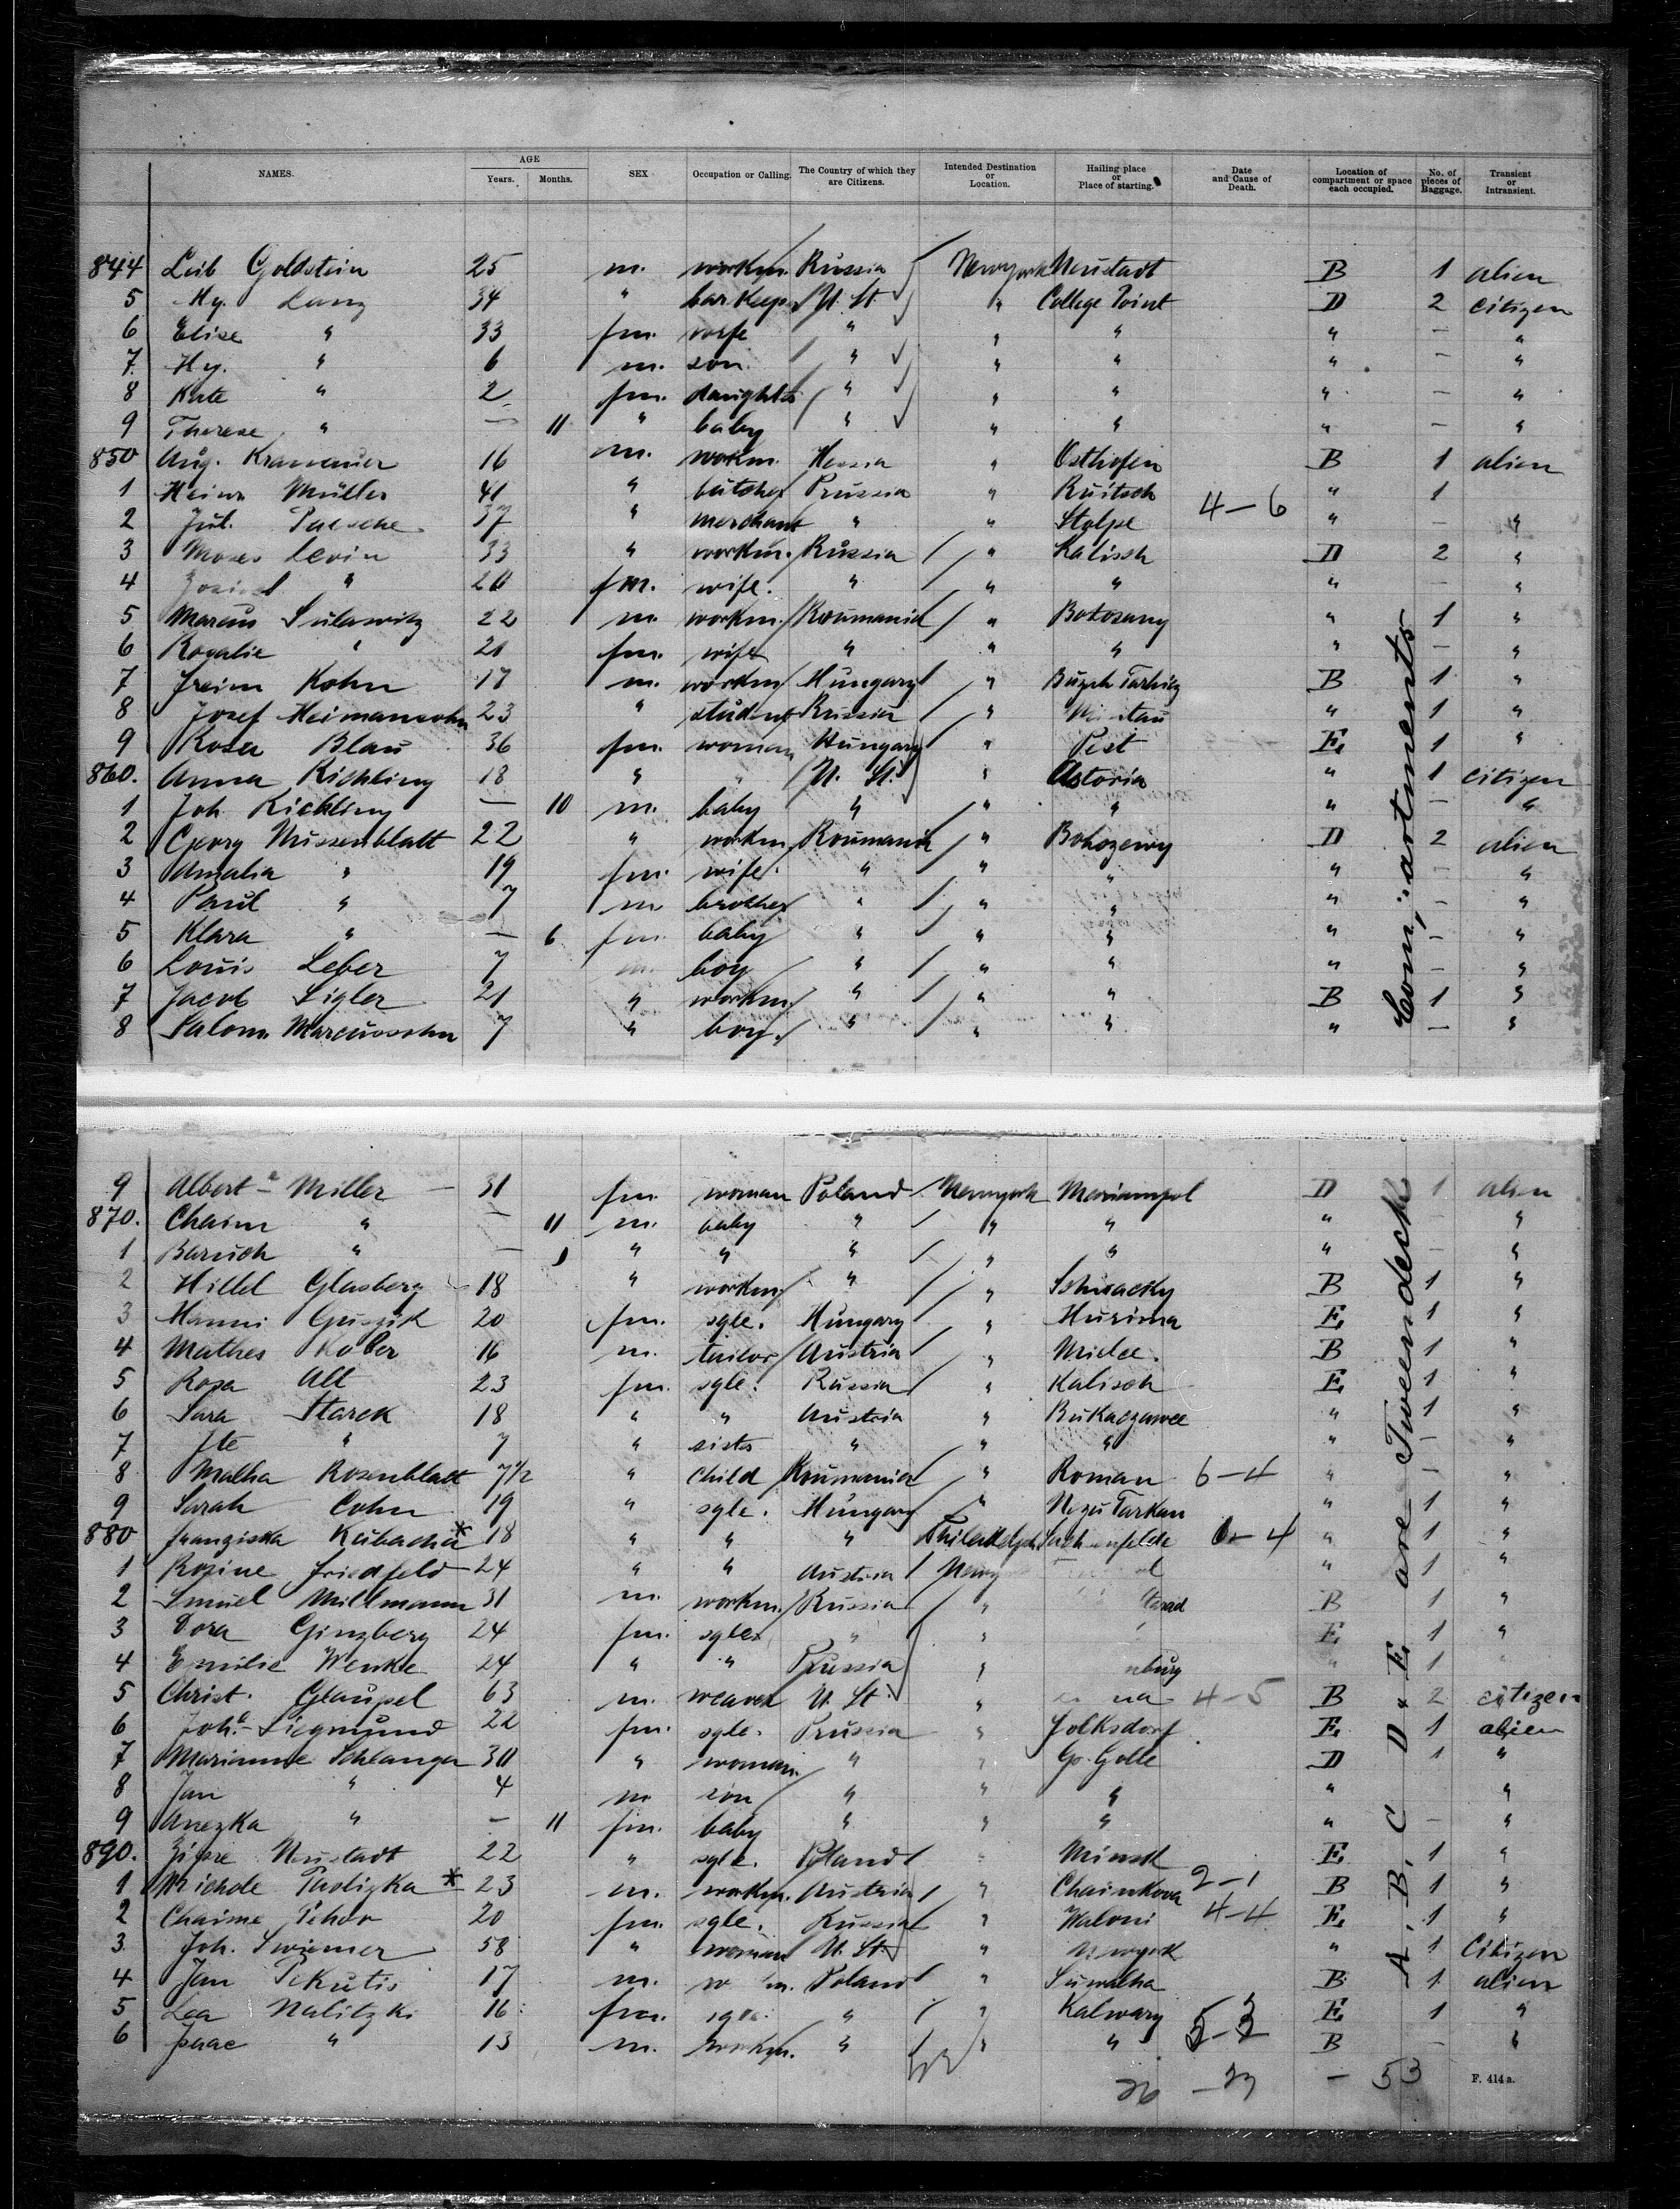 NAMES. AGE Years. Months. SEX Occupation or Calling. The Country of which they are Citizens. Intended Destination or Location. Hailing place or Place of starting. Date and Cause of Death. Location of compartment or space each occupied. No. of pieces of Baggage. Transient or Intransient.
844 Leib Goldstein 25 m. workm. Russia Newyork Neustadt B 1 alien
5 Hy. Lang 34 " barkeep. U. St. " College Point D 2 citizen
6 Elise " 33 fm. wife " " " " – "
7 Hy. " 6 m. son " " " " – "
8 Kate " 2 fm. daughter " " " " – "
9 Therese " – 11 " baby " " " " – "
850 Aug. 16 m. workm. Hessia " Osthofen B 1 alien
1 Heinr Müller 41 " butcher Prussia " 4–6 " 1
2 Jul. 37 " merchant " " Stolpe " – "
3 Moses Levin 33 " workm. Russia " Kalisch D 2 "
4 " 20 fm. wife. " " " " – "
5 Marcus 22 m. workm. Roumania " Botosany " 1 "
6 Rosalie " 21 fm. wife " " " " – "
7 Kohn 17 m. workm Hungary " B 1 "
8 Josef Heimansohn 23 " student Russia " " 1 "
9 Rosa Blau 36 fm. woman Hungary " Pest E, 1 "
860. Anna Richling 18 " " U. St. " Astoria " 1 citizen
1 Joh. Richling – 10 m. baby " " " " – "
2 Georg Mussenblatt 22 " workm. Roumania " D 2 alien
3 Amalia " 19 fm. wife. " " " " – "
4 Paul " 7 m brother " " " " – "
5 Klara " – 6 fm. baby " " " " – "
6 Louis Leber 7 m. boy " " " " – "
7 Jacob Sigler 21 " workm. " " " B 1 "
8 Salom. Marcussohn 7 " boy. " " " " – "
9 Albert e Miller 31 fm. woman Poland Newyork Mariampol D 1 alien
870. Chaim " – 11 m. baby " " " " "
1 Baruch " – " " " " " " – "
2 Hillel Glasberg 18 " workm " " B 1 "
3 Hanni 20 fm. sgle. Hungary " E, 1 "
4 Mathes Kober 16 m. tailor Austria " Mielec. B 1 "
5 Rosa Alt 23 fm. sgle. Russia " Kalisch E, 1 "
6 Sara Starck 18 " " Austria " " 1 "
7 Ite " 7 " sister " " " " – "
8 Malka Rosenblatt 7 1/2 " child Roumania " Roman 6–4 " – "
9 Sarah Cohn 19 " sgle. Hungary " " 1 "
880 Franziska * 18 " " " Philadelph. 6–4 " 1 "
1 Rosine Friedfeld 24 " " Austria " 1 "
2 Millmann 31 m. workm. Russia " B 1 "
3 Dora Ginzberg 24 fm. sgle. " " E, 1 "
4 Emilie Wenke 24 " " Prussia " " 1 "
5 Christ. Glaupel 63 m. weaver U. St. " 4–5 B 2 citizen
6 Joh.e Siegmund 22 fm. sgle. Prussia " E, 1 alien
7 Marianne Schlanga 30 " woman " " Gr. Golle D 1 "
8 Jan " 4 m son " " " " "
9 Anezka " – 11 fm. baby " " " " – "
890. Neustadt 22 " sgle. Poland " Minsk E, 1 "
1 * 23 m. workm. Austria " 2–1 B 1 "
2 20 fm. sgle. Russia " Waloni 4–4 E, 1 "
3 Joh. 58 " woman U. St. " Newyork " 1 Citizen
4 Jan Pikutis 17 m. Poland " B 1 alien
5 Lea Nalitzki 16 fm. " " Kalwary 5–3 E, 1 "
6 Isaac " 13 m. workm. " " " B – "
– 53 F. 414 a.
Compartments
A, B, C D & E are Tweendeck